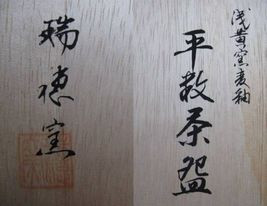 浅黄窯変釉
平数茶盌
瑞恵窯